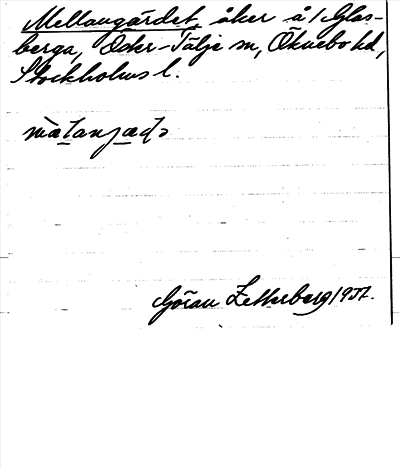 Mellangärdet, åker å 1 Glas-
berga, Öster-Tälje sn, Öknebo hd,
Stockholms l.
Göran Zetterberg 1937.